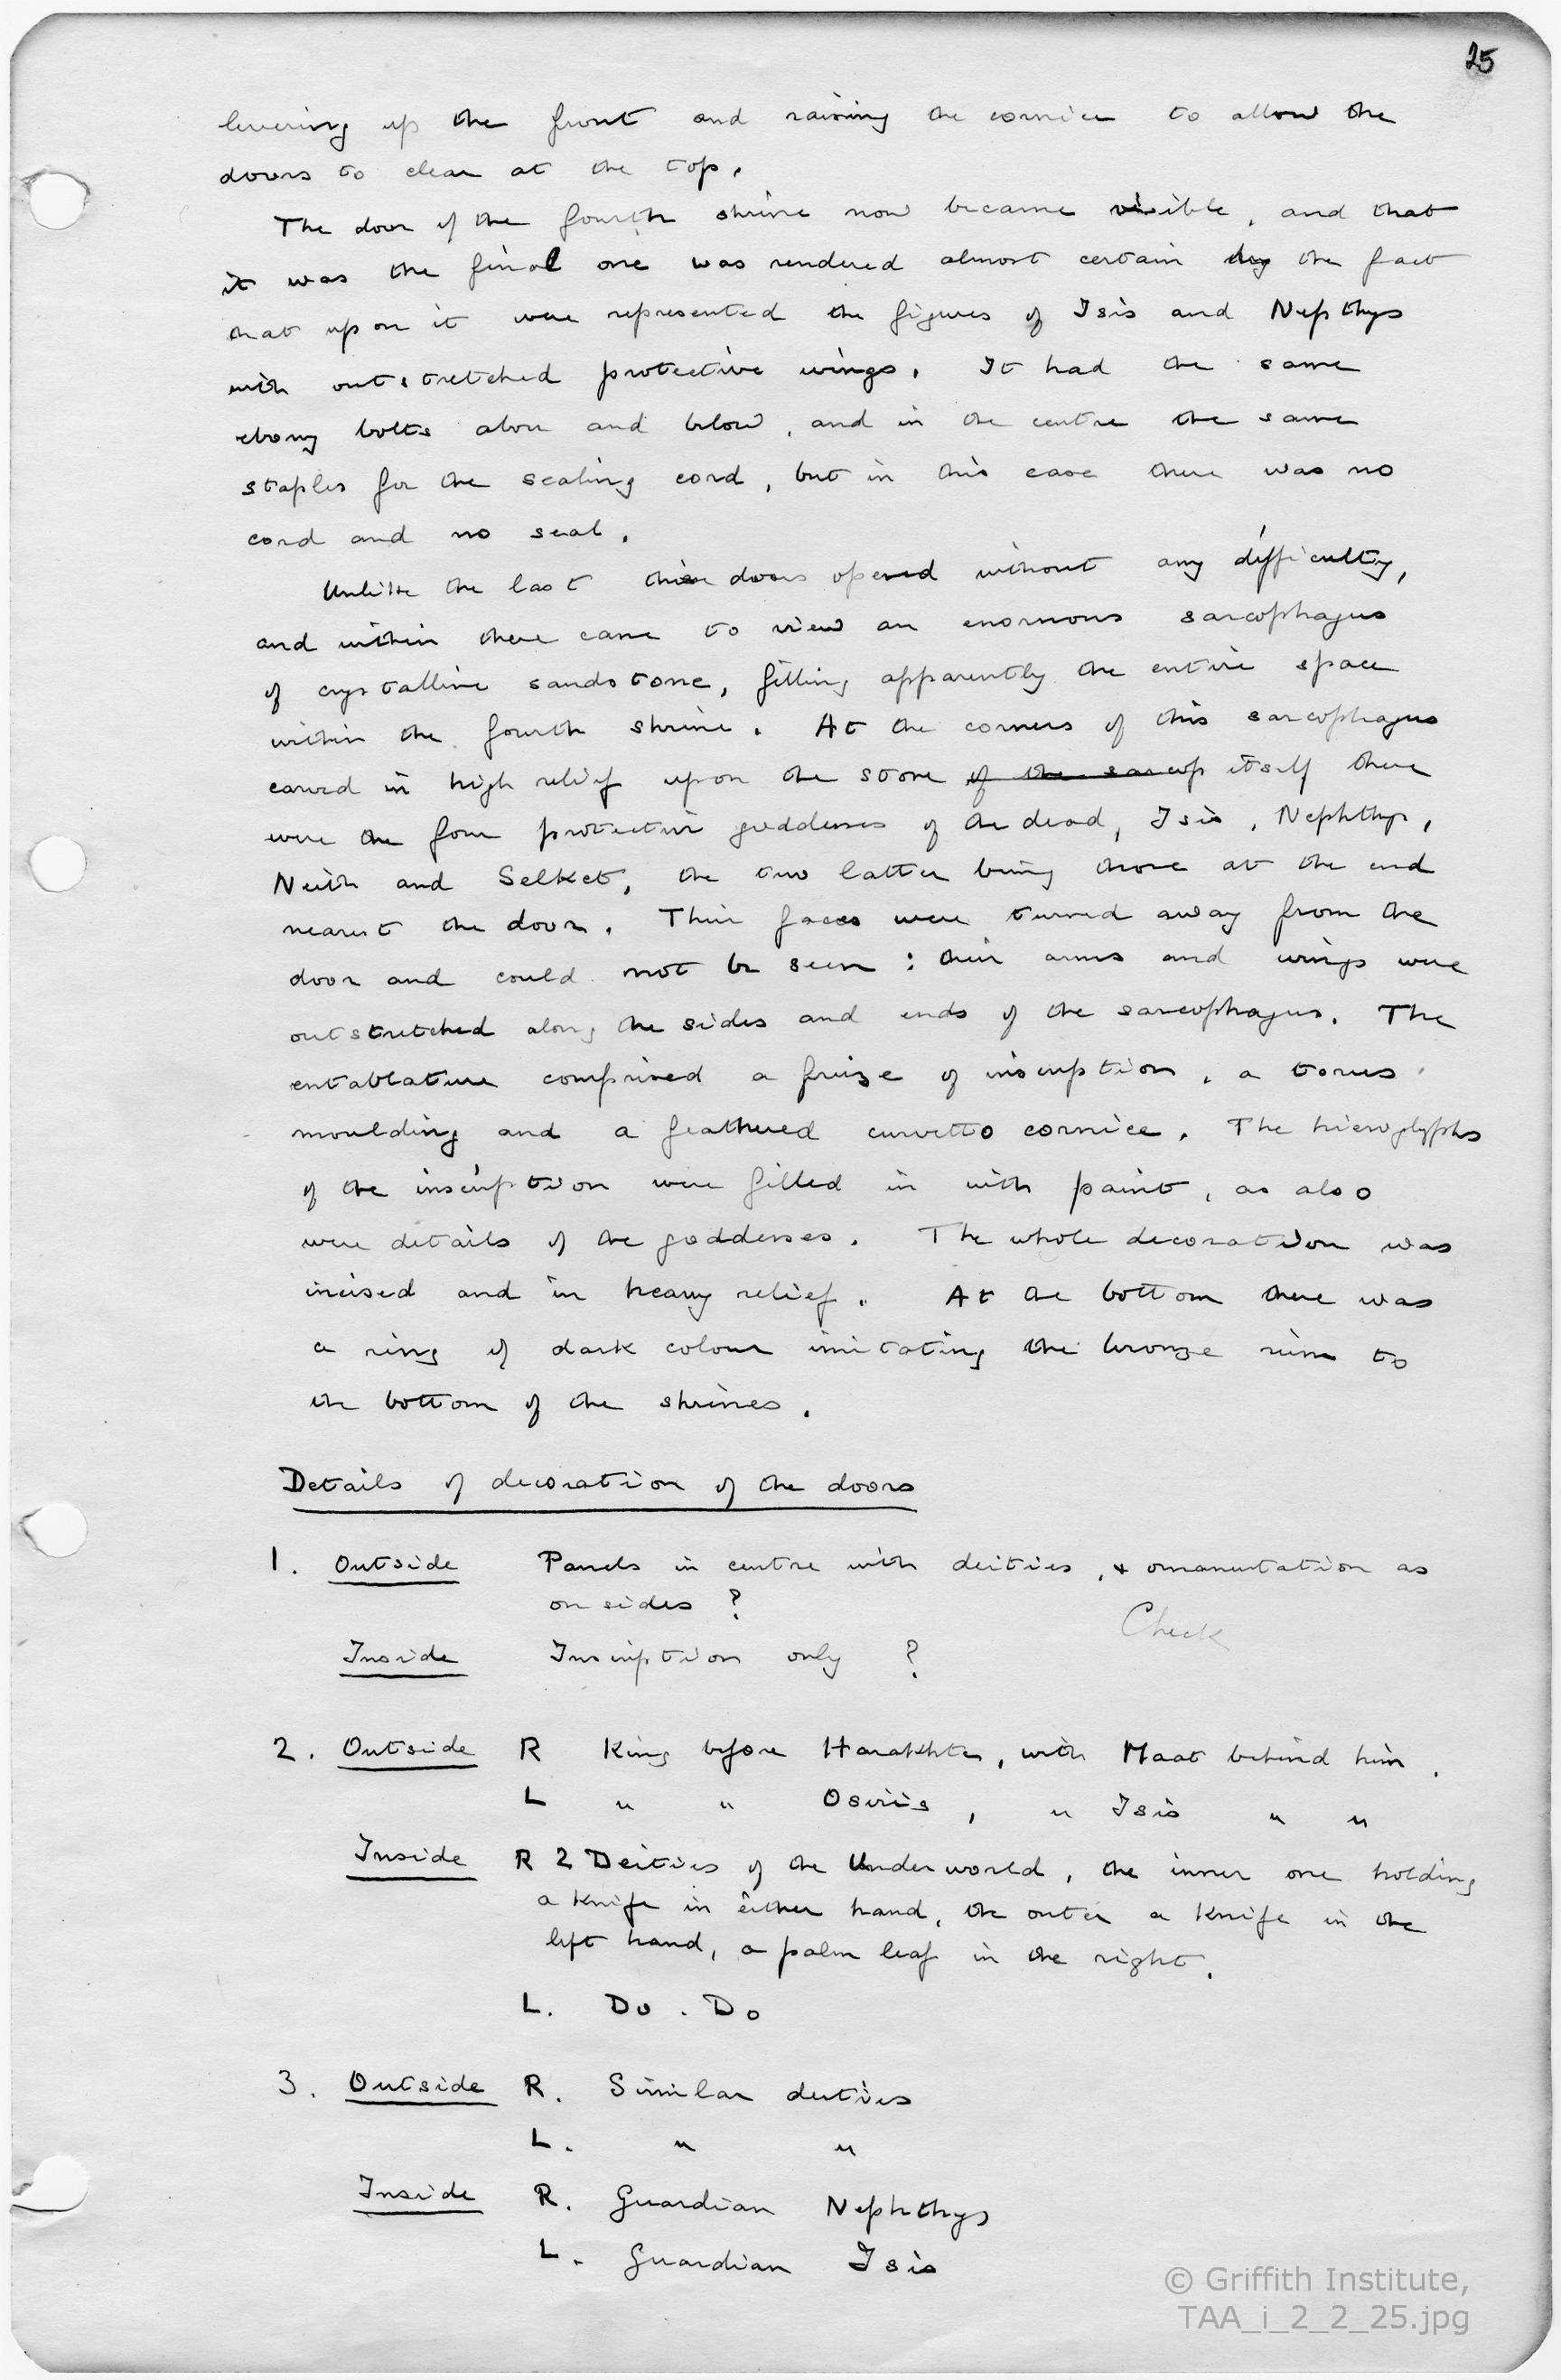 25
levering up the front and raising the cornice to allow the
doors to clear at the top.
The door of the fourth shrine now became visible, and that
it was the final one was rendered almost certain by the fact
that upon it were represented the figures of Isis and Nepthys
with outstretched protective wings. It had the same
ebony bolts above and below, and in the centre the same
staples for the sealing cord, but in this case there was no
cord and no seal.
Unlike the last these doors opened without any difficulty,
and within there came to view an enormous sarcophagus
of crystalline sandstone, filling apparently the entire space
within the fourth shrine. At the corners of this sarcophagus
carved in high relief upon the stone of the sarcop itself there
were the four protective goddesses of the dead, Isis, Nephthys,
Neith and Selket, the two latter being those at the end
nearest the door. Their faces were turned away from the
door and could not be seen: their arms and wings were
outstretched along the sides and ends of the sarcophagus. The
entablature comprised a frieze of inscription, a torus
moulding and a feathered curvetto cornice. The hieroglyphs
of the inscription were filled in with paint, as also
were details of the goddesses. The whole decoration was
incised and in heavy relief. At the bottom there was
a ring of dark colour imitating the bronze rim to
the bottom of the shrines.
Details of decoration of the doors
1. Outside Panels in centre with deities, & ornamentation as
on sides ?
Check
Inside Inscription only ?
2. Outside R King before Harakhte, with Maat behind him.
L " " Osiris, " Isis " "
Inside R 2 Deities of the Underworld, the inner one holding
a knife in either hand, the outer a knife in the
left hand, a palm leaf in the right.
L. Do. Do
3. Outside R. Similar deities
L. " "
Inside R. Guardian Nephthys
L. Guardian Isis
© Griffith Institute,
TAA_i_2_2_25.jpg